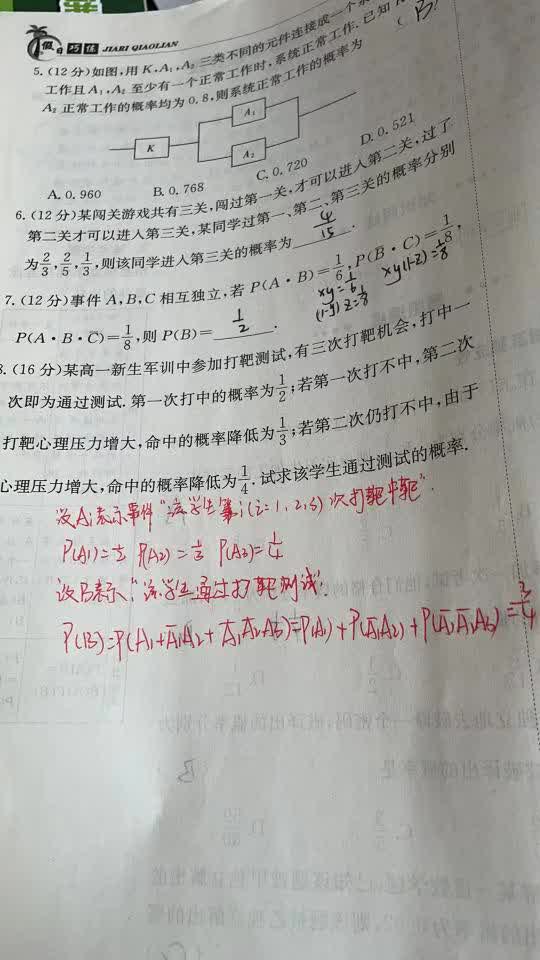 假日巧练 JIARI QIAOLIAN
5.(12分)如图,用K,A₁,A₂三类不同的元件连接成一个系
( B
工作且A₁,A₂至少有一个正常工作时,系统正常工作.已知
A₂正常工作的概率均为0.8,则系统正常工作的概率为
K
A₁
A₂
A. 0.960 B. 0.768 C. 0.720 D. 0.521
6.(12分)某闯关游戏共有三关,闯过第一关,才可以进入第二关,过了
第二关才可以进入第三关,某同学过第一、第二、第三关的概率分别
为2/3,2/5,1/3,则该同学进入第三关的概率为 4/15 .
7.(12分)事件A,B,C相互独立,若P(A·B)=1/6,P(B̄·C)=1/8,
xy=1/6 xy(1-z)=1/8
(1-y)z=1/8
P(A·B·C̄)=1/8,则P(B)= 1/2 .
8.(16分)某高一新生军训中参加打靶测试,有三次打靶机会,打中一
次即为通过测试.第一次打中的概率为1/2;若第一次打不中,第二次
打靶心理压力增大,命中的概率降低为1/3;若第二次仍打不中,由于
心理压力增大,命中的概率降低为1/4.试求该学生通过测试的概率.
设Ai表示事件"该学生第i(i=1,2,3)次打靶中靶".
P(A1)=1/2 P(A2)=1/3 P(A3)=1/4
设B表示"该学生通过打靶测试".
P(B)=P(A₁+Ā₁A₂+Ā₁Ā₂A₃)=P(A₁)+P(Ā₁A₂)+P(Ā₁Ā₂A₃)=3/4